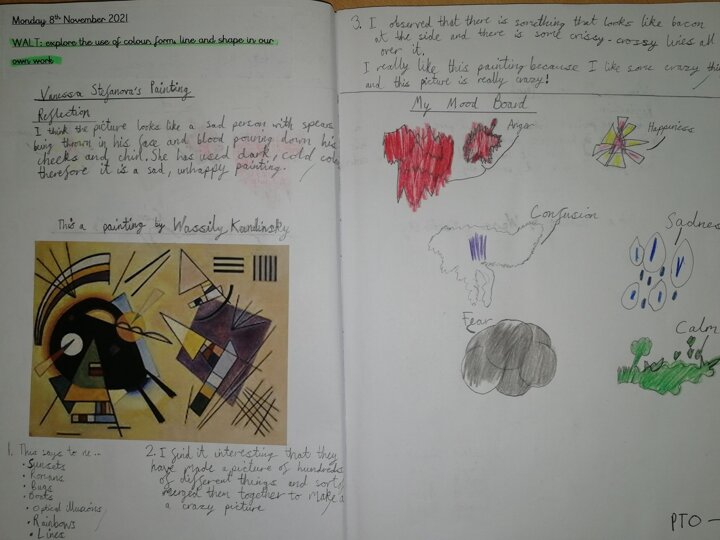 Monday 8th November 2021
WALT: explore the use of colour, form, line and shape in our
own work
Vanessa Stefanova's Painting
Reflection
I think the picture looks like a sad person with spears
being thrown in his face and blood pouring down his
cheeks and chin. She has used dark, cold
therefore it is a sad, unhappy painting.
This a painting by Wassily Kandinsky
1. This says to me...
• Sunsets
• Romans
• Bugs
• Boats
• Optical illusions
• Rainbows
• Lines
2. I find it interesting that they
have made a picture of hundreds
of different things and sort of
merged them together to make a
a crazy picture
3. I observed that there is something that looks like bacon
at the side and there is some crissy-crossy lines all
over it.
I really like this painting because I like some crazy
and this picture is really crazy!
My Mood Board
Anger
Happiness
Confusion
Sadnes
Fear
Calm
PTO